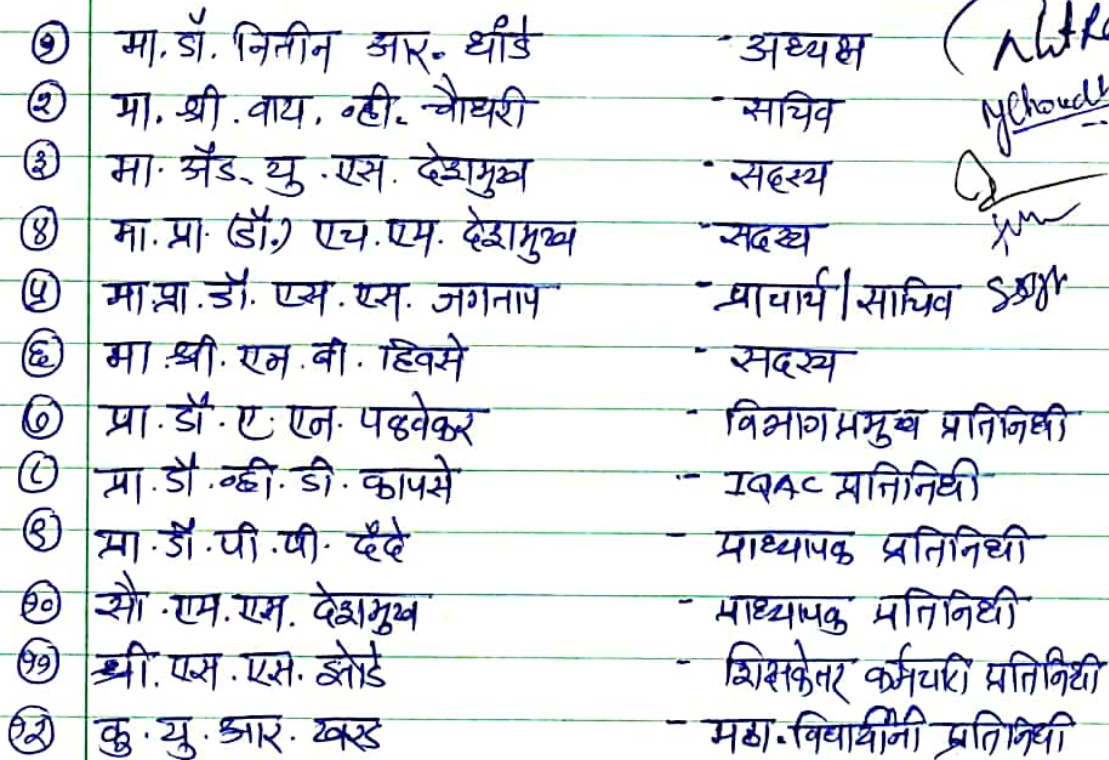 १ मा. डॉ. नितीन आर. धांडे - अध्यक्ष
२ मा. श्री. वाय. व्ही. चौधरी - सचिव
३ मा. ॲड. यु. एस. देशमुख - सदस्य
४ मा. प्रा. (डॉ.) एच. एम. देशमुख - सदस्य
५ मा प्रा. डॉ. एस. एस. जगताप - प्राचार्य | साचिव
६ मा श्री. एन. बी. हिवसे - सदस्य
७ प्रा. डॉ. ए. एन. पडवेकर - विभाग प्रमुख प्रतिनिधी
८ प्रा. डॉ. व्ही. डी. कापसे - IQAC प्रतिनिधी
९ प्रा. डॉ. पी. पी. दंदे - प्राध्यापक प्रतिनिधी
१० सौ. एम. एम. देशमुख - प्राध्यापक प्रतिनिधी
११ श्री. एस. एस. झोडे - शिक्षकेतर कर्मचारी प्रतिनिधी
१२ कु. यु. आर. खरड - महा. विद्यार्थीनी प्रतिनिधी